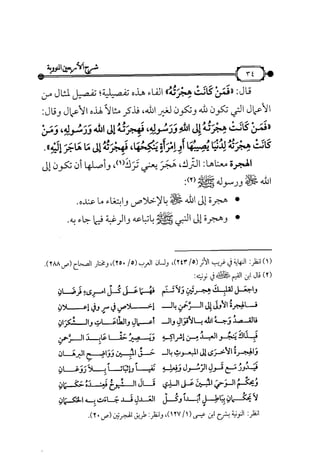 شرح الأربعين النووية
٣٤
قال: «فَمَنْ كَانَتْ هِجْرَتُهُ» الفاء هذه تفصيلية؛ تفصيل لمثال من
الأعمال التي تكون لله وتكون لغير الله، فذكر مثالاً لهذه الأعمال وقال:
«فَمَنْ كَانَتْ هِجْرَتُهُ إِلَى اللهِ وَرَسُولِهِ، فَهِجْرَتُهُ إِلَى اللهِ وَرَسُولِهِ، وَمَنْ
كَانَتْ هِجْرَتُهُ لِدُنْيَا يُصِيبُهَا أَوِ امْرَأَةٍ يَنْكِحُهَا، فَهِجْرَتُهُ إِلَى مَا هَاجَرَ إِلَيْهِ».
الهجرة معناها: الترك، هَجَرَ يعني تَرَكَ(١)، وأصلها أن تكون إلى
الله ﷺ ورسوله ﷺ(٢):
• هجرة إلى الله ﷺ بالإخلاص وابتغاء ما عنده.
• وهجرة إلى النبي ﷺ باتباعه والرغبة فيما جاء به.
(١) انظر: النهاية في غريب الأثر (٥/ ٢٤٣)، ولسان العرب (٥/ ٢٥٠)، ومختار الصحاح (ص ٢٨٨).
(٢) قال ابن القيم في نونيته:
واجعل لقلبك هجرتين ولا تنم فهما على كل امرىء فرضان
فالهجرة الأولى إلى الرحمن بالـ إخلاص في سر وفي إعلان
فالقصد وجه الله بالأقوال والـ أعمال والطاعات والشكران
فبذاك ينجو العبد من إشراكه ويصير حقا عابد الرحمن
والهجرة الأخرى إلى المبعوث بالـ حق المبين وواضح البرهان
فيدور مع قول الرسول وفعله نفيا وإثباتا بلا روغان
ويحكم الوحي المبين على الذي قال الشيوخ فعنده حكمان
لا يحكمان بباطل أبدا وكل العدل قد جاءت به الحكمان
انظر: النونية بشرح ابن عيسى (١/ ١٢٧)، وانظر: طريق الهجرتين (ص ٢٠).